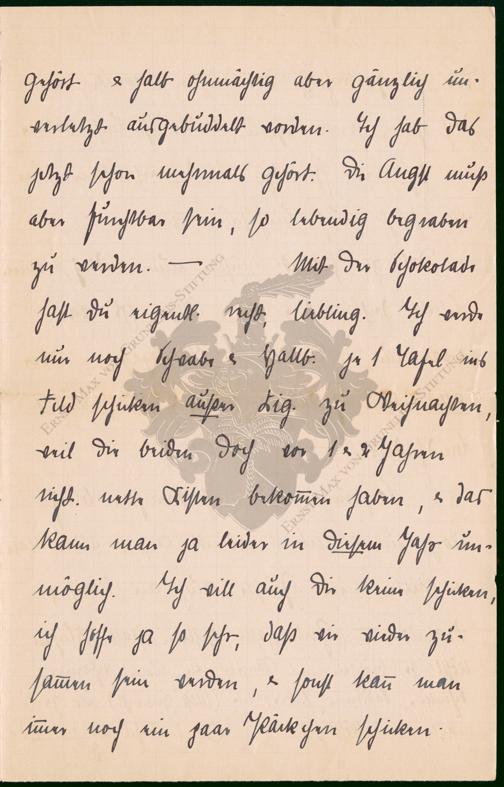 gehört & halb ohnmächtig aber gänzlich un-
verletzt ausgebuddelt worden. Ich hab das
jetzt schon mehrmals gehört. Die Angst muß
aber furchtbar sein, so lebendig begraben
zu werden. — Mit der Schokolade
hast Du eigentl. recht, Liebling. Ich werde
nur noch Schwabe & Hallb. je 1 Tafel ins
Feld schicken außer Zig. zu Weihnachten,
weil die beiden doch vor 1 & 2 Jahren
nette Kisten bekom̅en haben, & das
kann man ja leider in diesem Jahr un-
möglich. Ich will auch Dir keine schicken,
ich hoffe ja so sehr, daß wir wieder zu-
sam̅en sein werden, & sonst kan̅ man
im̅er noch ein paar Päckchen schicken.
ERNST-MAX VON GRUNELIUS-STIFTUNG
ERNST-MAX VON GRUNELIUS-STIFTUNG